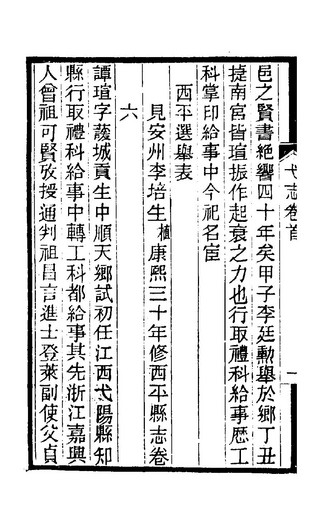 弋志卷首
一
邑之賢書絶響四十年矣甲子李廷勳舉於鄉丁丑
捷南宮皆瑄振作起衰之力也行取禮科給事歷工
科掌印給事中今祀名宦
西平選舉表
見安州李培生植康熙三十年修西平縣志卷
六
譚瑄字護城貢生中順天鄉試初任江西弋陽縣知
縣行取禮科給事中轉工科都給事其先浙江嘉興
人曾祖可賢攷授通判祖昌言進士登萊副使父貞